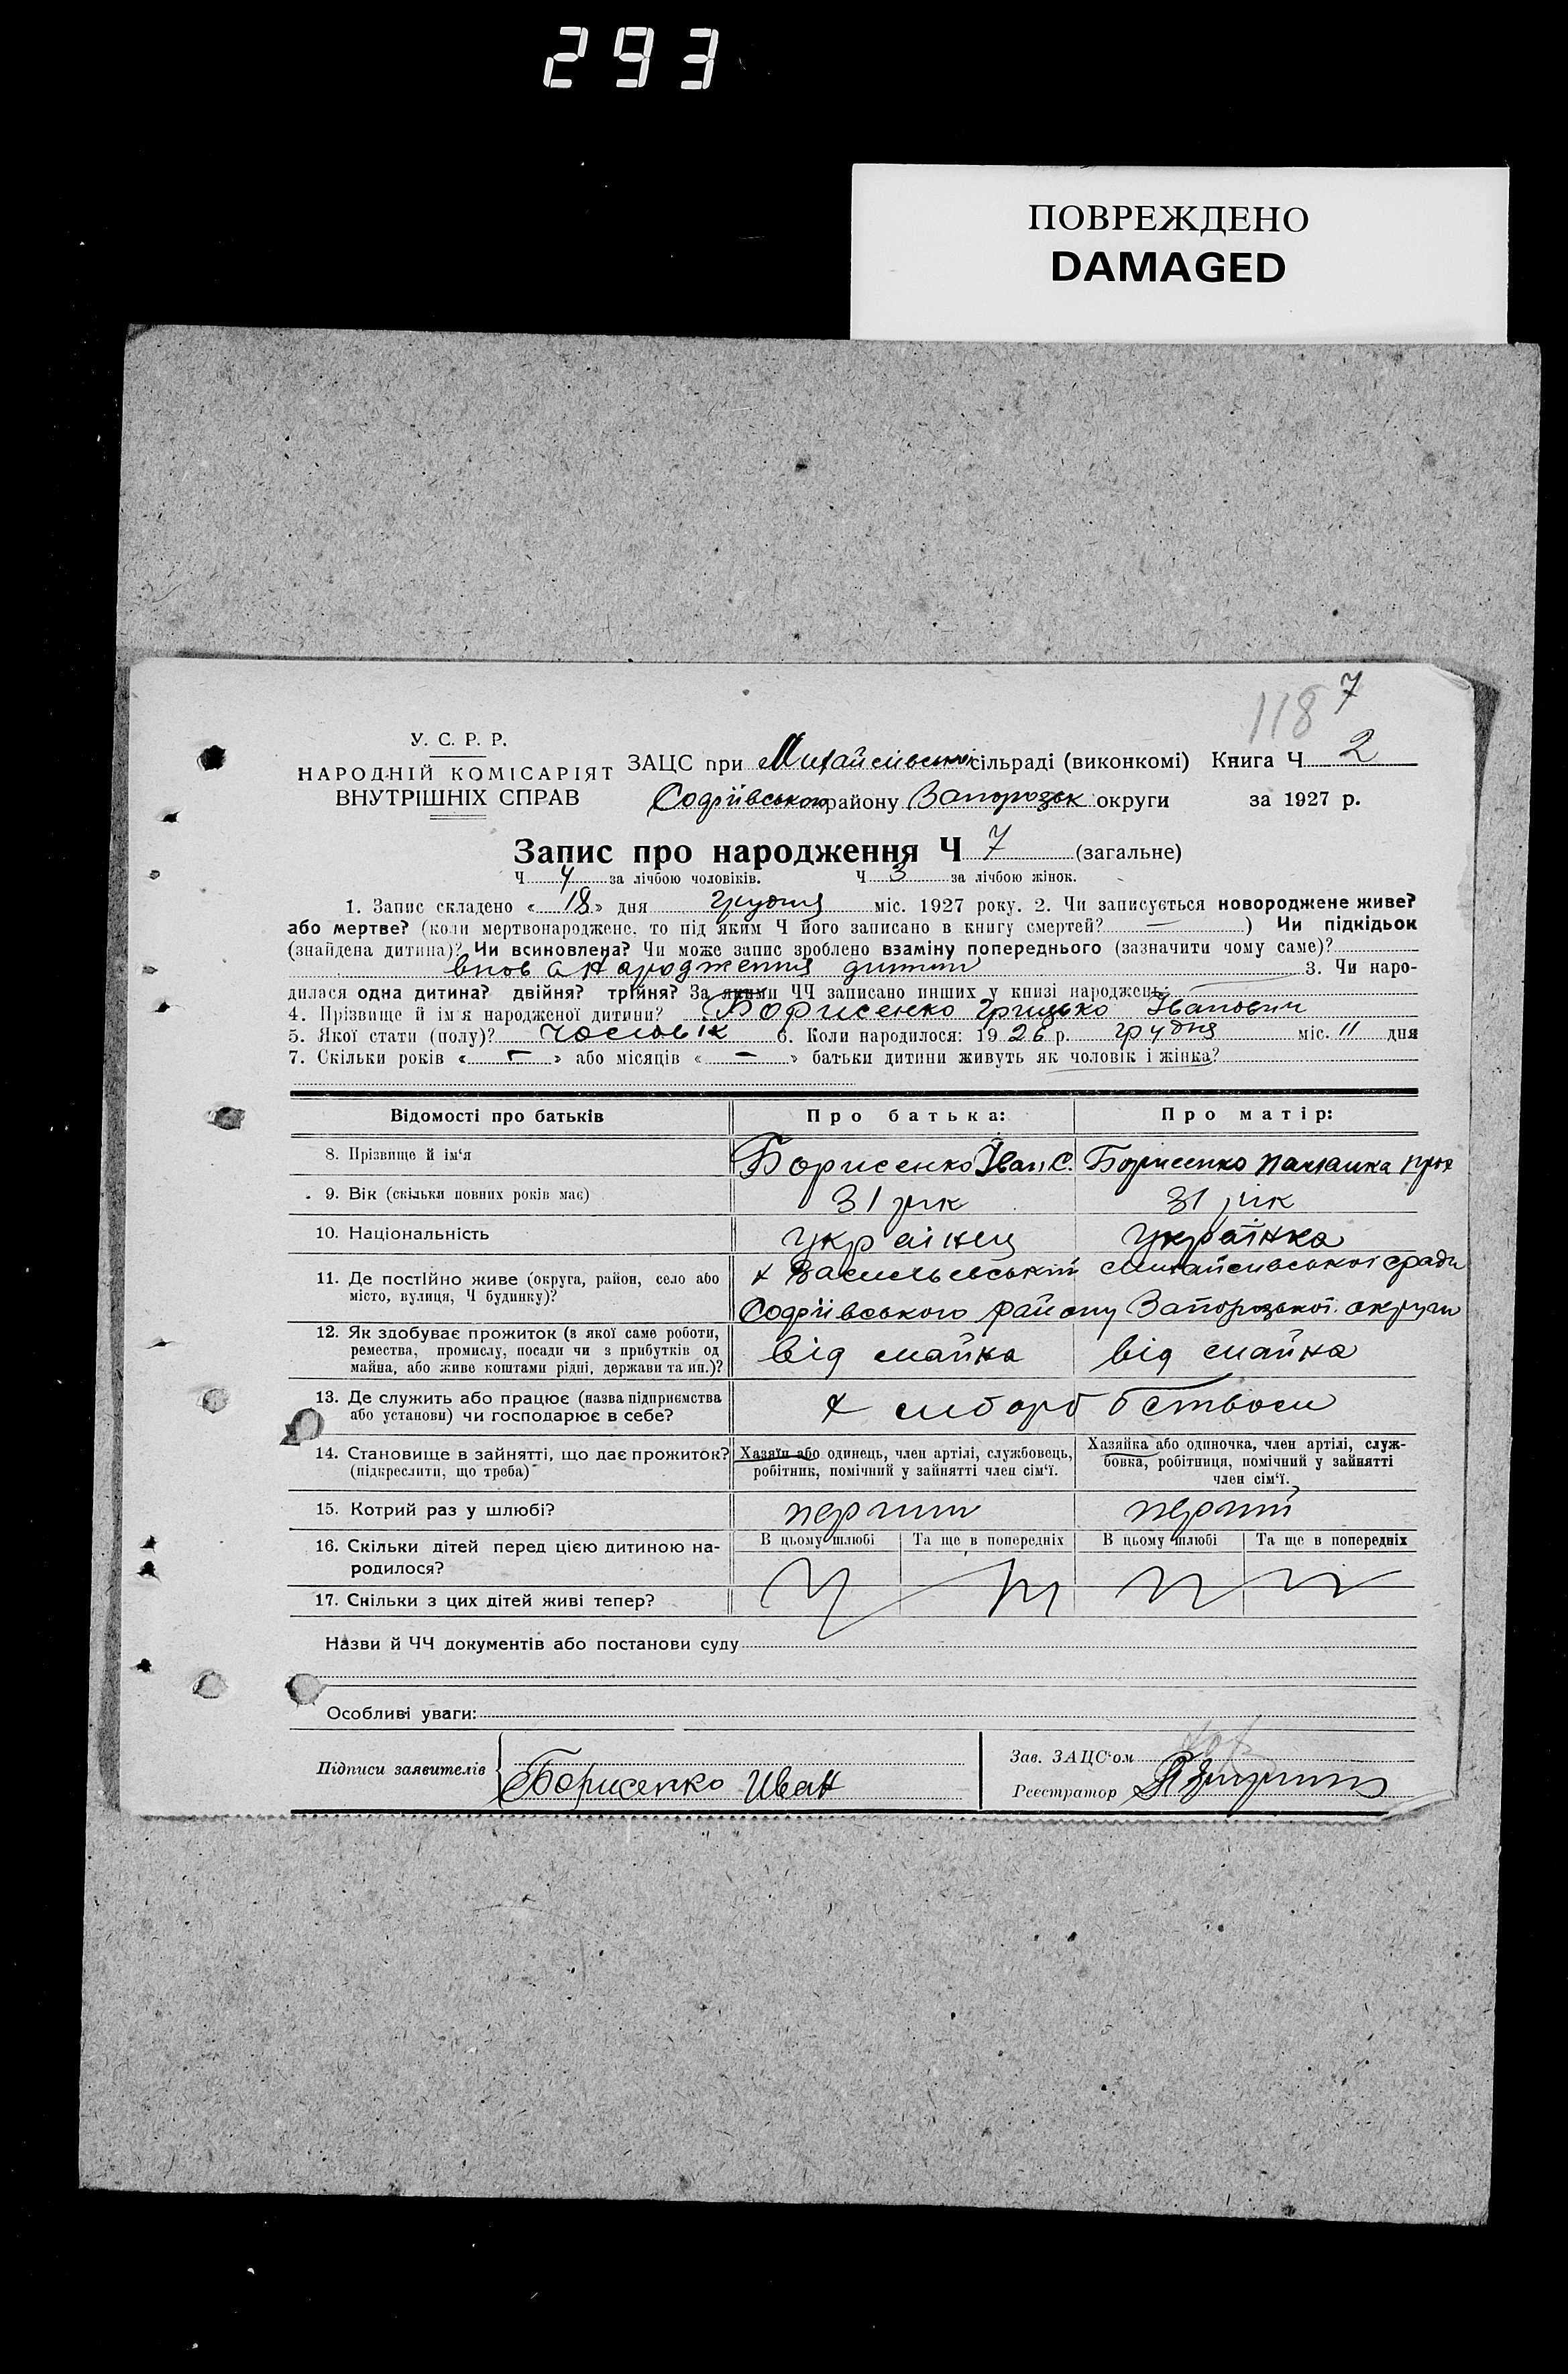 293
ПОВРЕЖДЕНО
DAMAGED
118 7
У. С. Р. Р.
НАРОДНІЙ КОМІСАРІЯТ
ВНУТРІШНІХ СПРАВ
ЗАЦС при сільраді (виконкомі) Книга Ч 2
району Запорозьк округи за 1927 р.
Запис про народження Ч 7 (загальне)
Ч 4 за лічбою чоловіків. Ч 3 за лічбою жінок.
1. Запис складено « 18 » дня грудня міс. 1927 року. 2. Чи записується новороджене живе?
або мертве? (коли мертвонароджене, то під яким Ч його записано в книгу смертей? — ) Чи підкідьок
(знайдена дитина)? Чи всиновлена? Чи може запис зроблено взаміну попереднього (зазначити чому саме)?
вновь народження дитини 3. Чи наро-
дилася одна дитина? двійня? трійня? За якими ЧЧ записано инших у книзі народжень:
4. Прізвище й ім'я народженої дитини? Борисенко Грицько Іванович
5. Якої стати (полу)? чоловік 6. Коли народилося: 1926 р. грудня міс. 11 дня
7. Скільки років « — » або місяців « — » батьки дитини живуть як чоловік і жінка?
Відомості про батьків Про батька: Про матір:
8. Прізвище й ім'я Борисенко Іван С. Борисенко
9. Вік (скільки повних років має) 31 рік 31 рік
10. Національність українец українка
11. Де постійно живе (округа, район, село або
місто, вулиця, Ч будинку)?
району Запорозької округи
12. Як здобуває прожиток (з якої саме роботи,
ремества, промислу, посади чи з прибутків од
майна, або живе коштами рідні, держави та ин.)?
від майна від майна
13. Де служить або працює (назва підприємства
або установи) чи господарює в себе?
14. Становище в зайнятті, що дає прожиток?
(підкреслити, що треба)
Хазяїн або одинець, член артілі, службовець,
робітник, помічний у зайнятті член сім'ї.
Хазяйка або одиночка, член артілі, служ-
бовка, робітниця, помічний у зайнятті
член сім'ї.
15. Котрий раз у шлюбі? перший перший
16. Скільки дітей перед цією дитиною на-
родилося?
В цьому шлюбі Та ще в попередніх В цьому шлюбі Та ще в попередніх
17. Скільки з цих дітей живі тепер?
Назви й ЧЧ документів або постанови суду
Особливі уваги:
Підписи заявителів Борисенко Иван
Зав. ЗАЦС'ом
Реєстратор